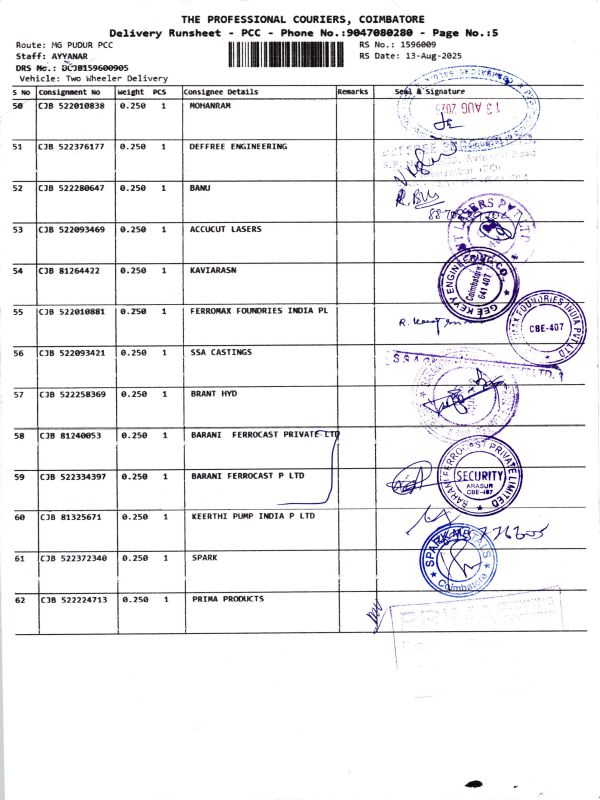 THE PROFESSIONAL COURIERS, COIMBATORE
Delivery Runsheet - PCC - Phone No.:9047080280 - Page No.:5
Route: MG PUDUR PCC RS No.: 1596009
Staff: AYYANAR RS Date: 13-Aug-2025
DRS No.: DCJB159600905
Vehicle: Two Wheeler Delivery
S No Consignment No Weight PCS Consignee Details Remarks Seal & Signature
50 CJB 522010838 0.250 1 MOHANRAM
13 AUG 2025
51 CJB 522376177 0.250 1 DEFFREE ENGINEERING
52 CJB 522280647 0.250 1 BANU
53 CJB 522093469 0.250 1 ACCUCUT LASERS
LASERS PVT LTD
54 CJB 81264422 0.250 1 KAVIARASN
GEE KEYY ENGINEERING CO.
Coimbatore
641 407
55 CJB 522010881 0.250 1 FERROMAX FOUNDRIES INDIA PL
FOUNDRIES INDIA PVT LTD
CBE-407
56 CJB 522093421 0.250 1 SSA CASTINGS
57 CJB 522258369 0.250 1 BRANT HYD
58 CJB 81240053 0.250 1 BARANI FERROCAST PRIVATE LTD
59 CJB 522334397 0.250 1 BARANI FERROCAST P LTD
BARANI FERROCAST PRIVATE LIMITED
SECURITY
ARASUR
CBE-407
60 CJB 81325671 0.250 1 KEERTHI PUMP INDIA P LTD
61 CJB 522372340 0.250 1 SPARK
SPARK METALS
Coimbatore
62 CJB 522224713 0.250 1 PRIMA PRODUCTS